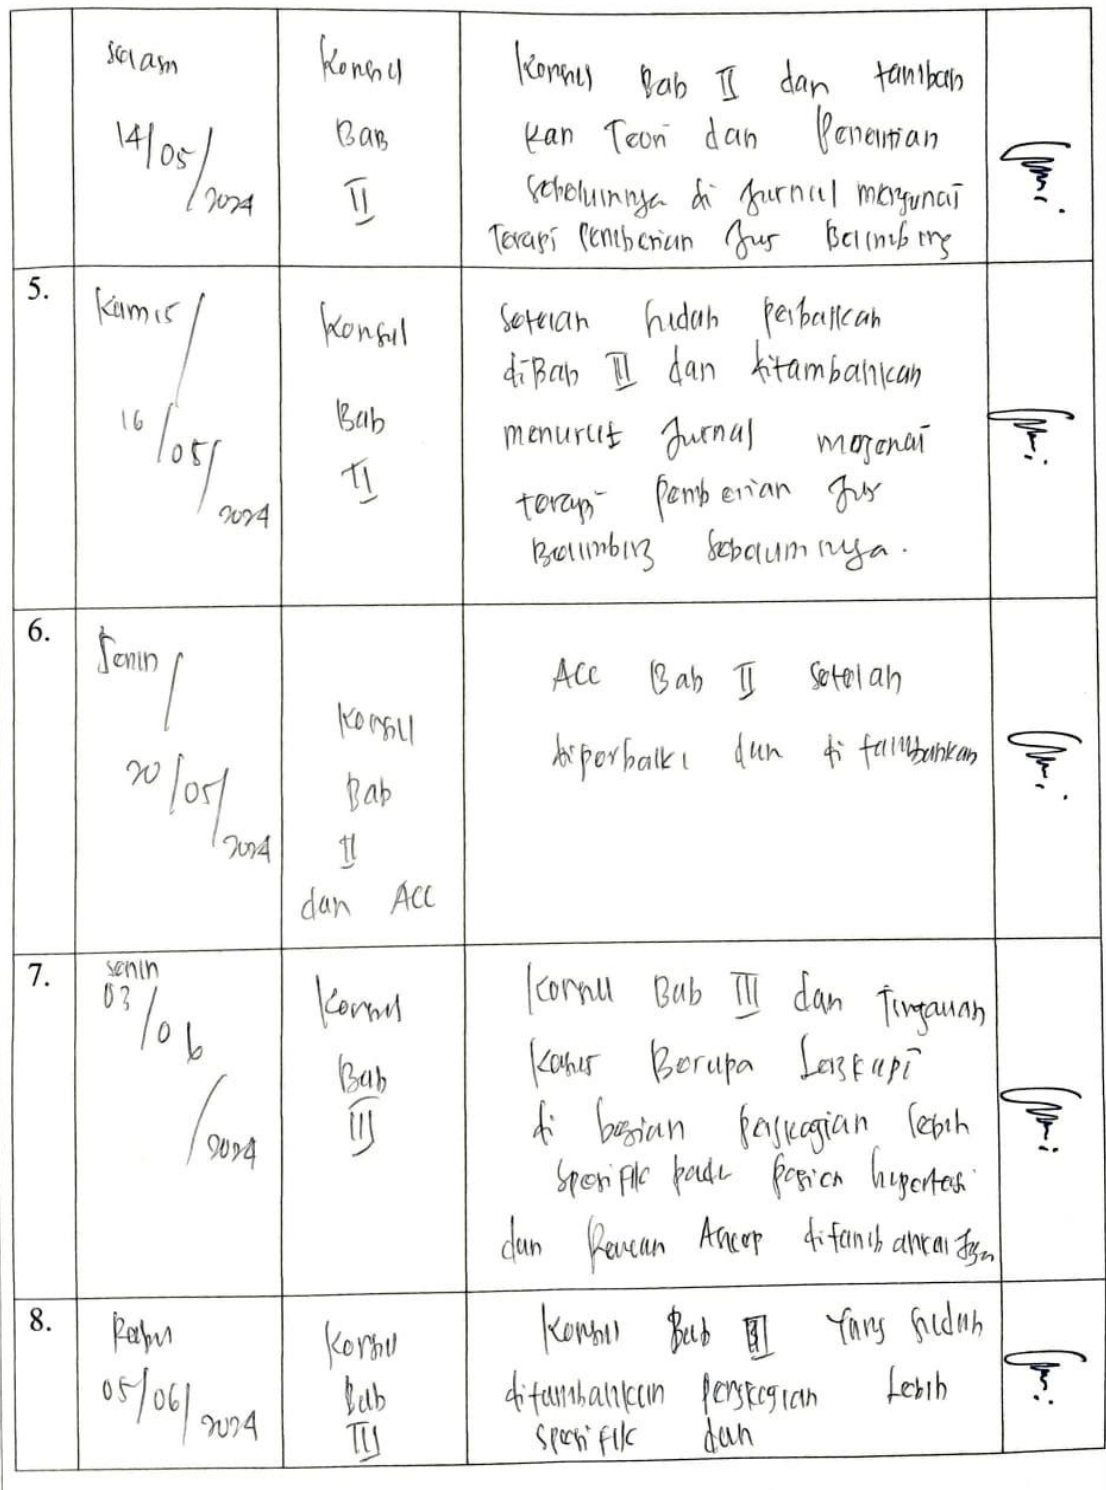 Selasa
14/05/2024
Konsul
Bab
II
Konsul Bab II dan tambah
kan Teori dan Penelitian
Sebelumnya di Jurnal mengenai
Terapi Pemberian Jus Belimbing
5.
Kamis
16/05/2024
Konsul
Bab
II
Setelah sudah perbaikan
di Bab II dan ditambahkan
menurut Jurnal mengenai
terapi Pemberian Jus
Belimbing Sebelumnya.
6.
Senin
20/05/2024
Konsul
Bab
II
dan ACC
ACC Bab II Setelah
diperbaiki dan di tambahkan
7.
Senin
03/06/2024
Konsul
Bab
III
Konsul Bab III dan Tinjauan
Kasus Berupa Lengkapi
di bagian pengkajian lebih
spesifik pada pasien hipertensi
dan Askep ditambahkan
8.
Rabu
05/06/2024
Konsul
Bab
III
Konsul Bab III Yang sudah
ditambahkan Pengkajian Lebih
spesifik dan